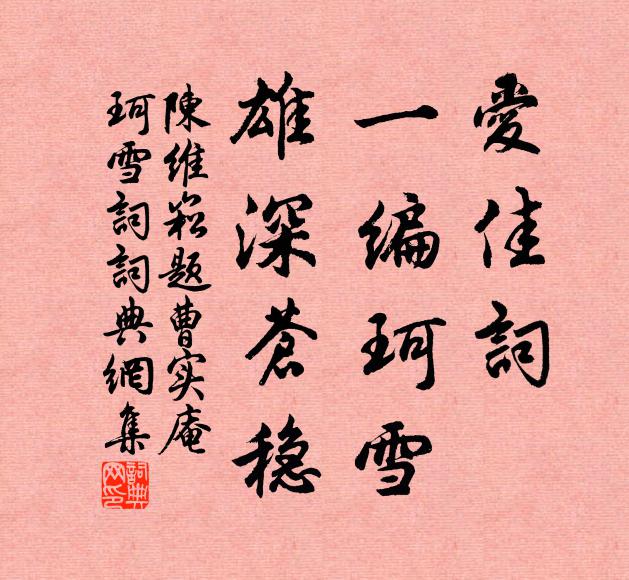 愛佳詞
一編珂雪
雄深蒼穩
陳維崧題曹实庵
珂雪詞詞典網集
詞典
网印